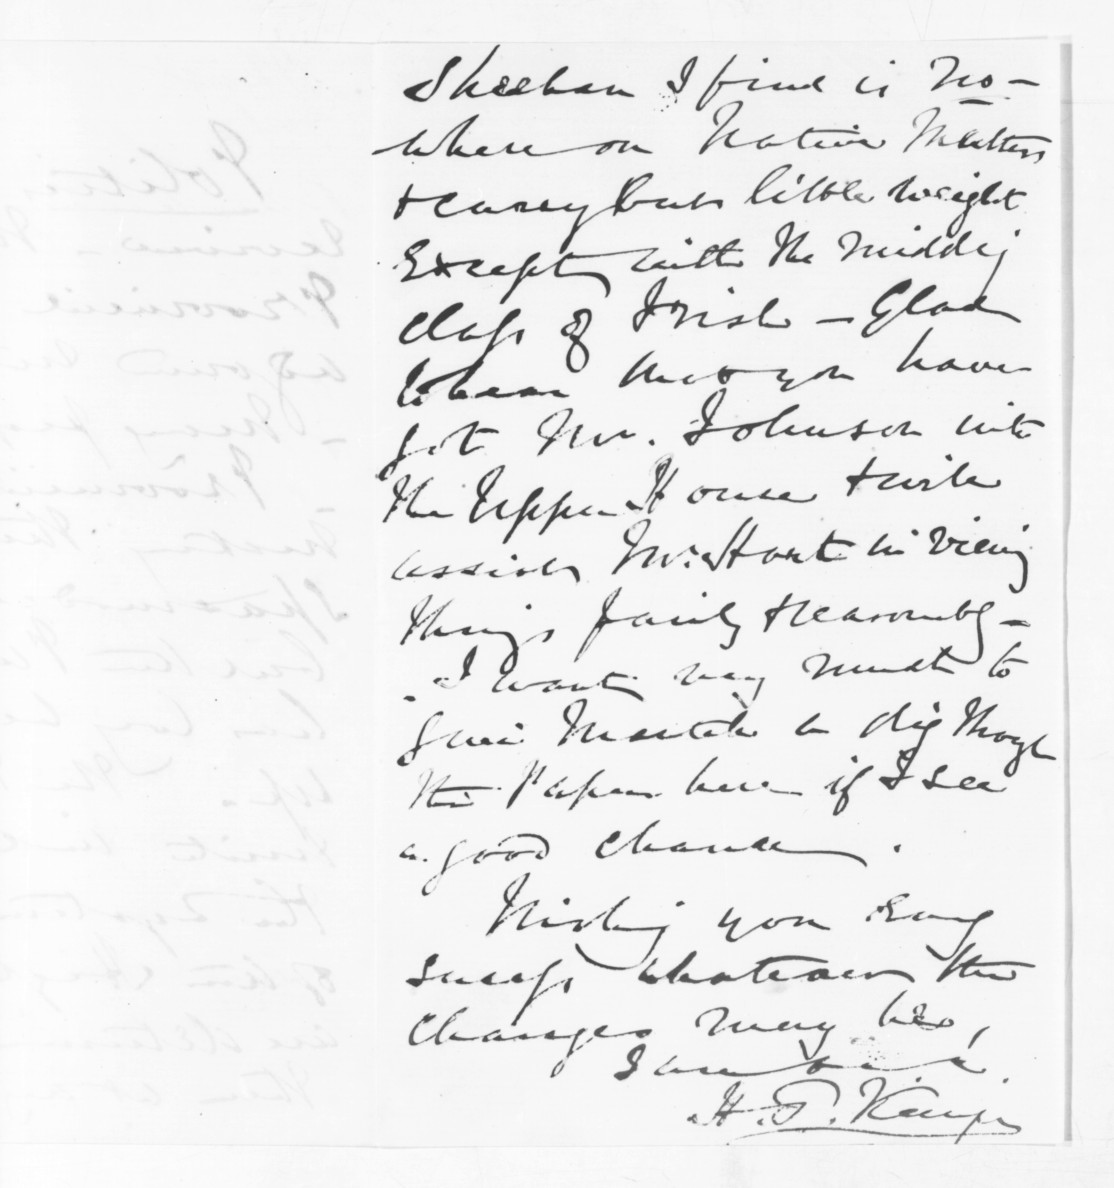 Sheehan I find is no-
where on Native Matters
& carry but little weight
Except with the middlg
class of Irish — Glad
to hear that you have
got Mr. Johnson into
the Upper House & wish
assist Mr. Hart in viewg
things fairly & reasonably —
I want very much to
give Mantell a dig though
the Papers here if I see
a good chance.
Wishing you every
success whatever the
changes may be,
I am
H. T. Kemp